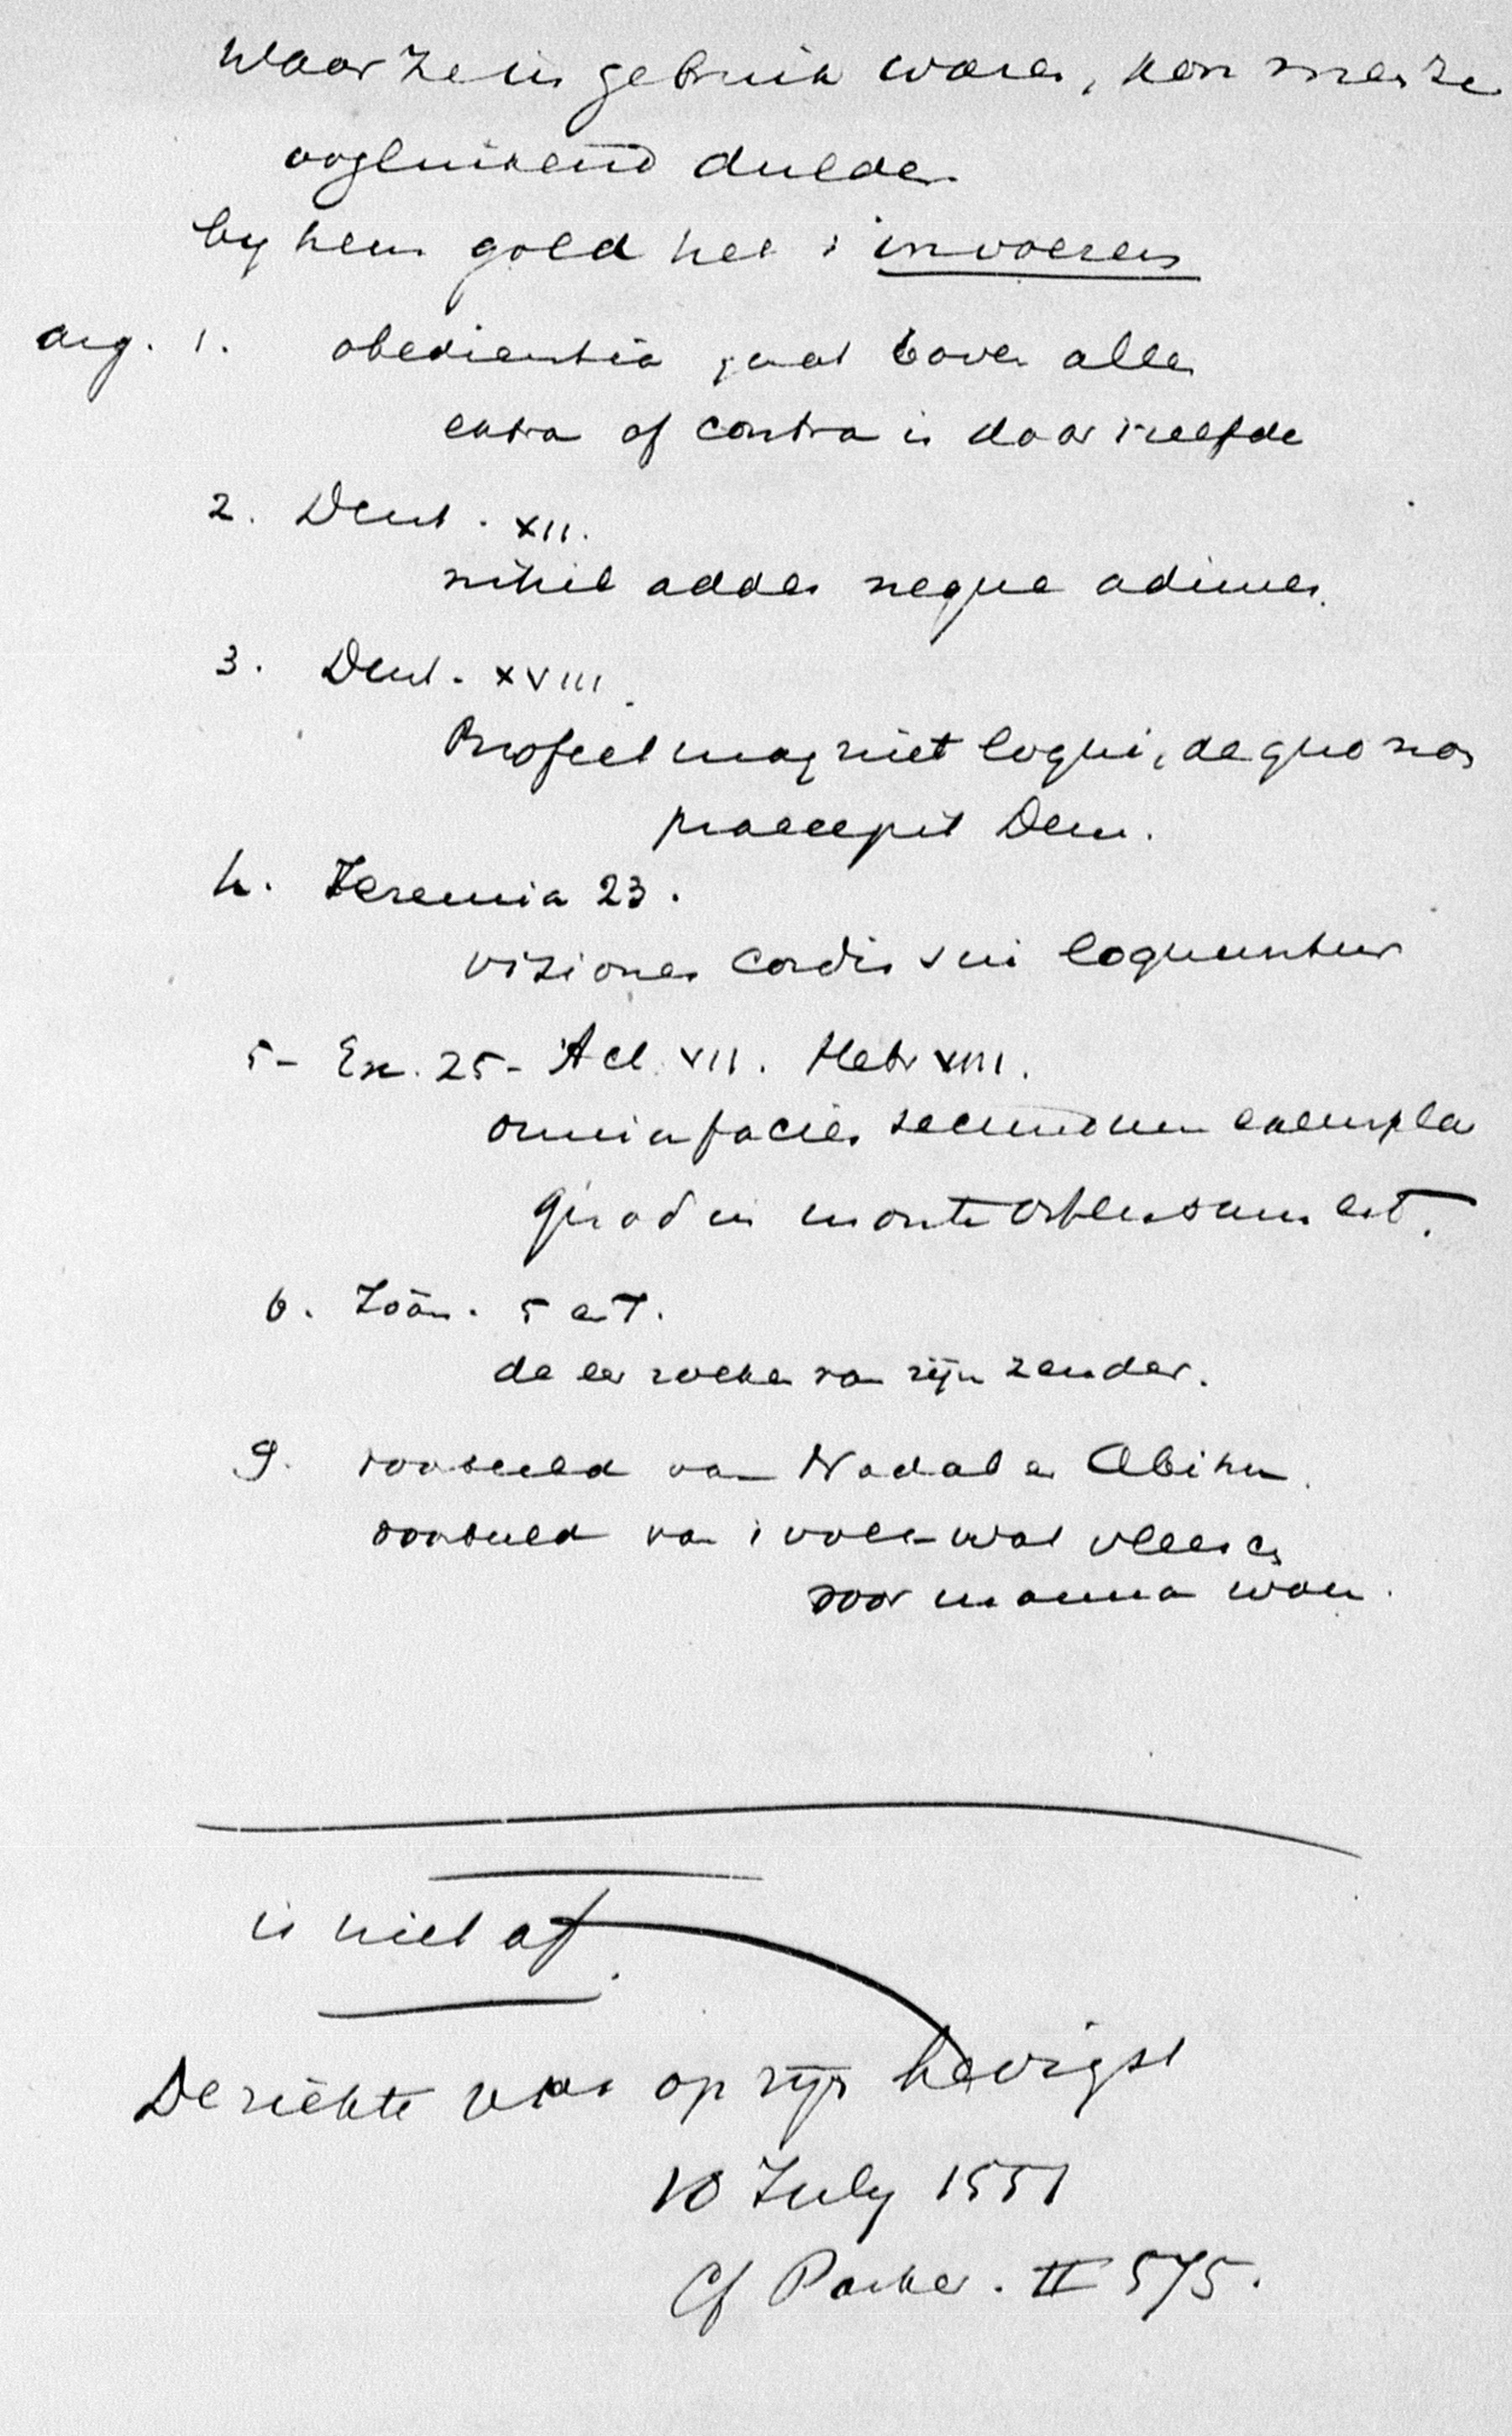 Waar ze in gebruik waren, kon men ze
oogluikend dulden
by hem gold het : invoeren
arg. 1. obedientia gaat boven alles
extra of contra is daar
2. Deut. XII.
nihil addes neque adimes.
3. Deut. XVIII.
Profeet mag niet loqui, de quo non
praecepit Deus.
4. Jeremia 23.
visiones cordis sui loquuntur
5- Ex. 25- Act. VII. Hebr VIII.
omnia facies secundum exemplar
quod in monte ostensum est.
6. Joän. 5 en 7.
de eer zoeken van zijn zender.
9. voorbeeld van Nadab en Abihu.
voorbeeld van 't volk wat vleesch
voor manna wou.
is niet af.
De ziekte was op zijn hevigst
10 July 1551
Cf Parker. II 575.